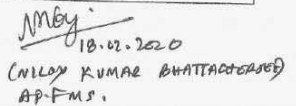 18.02.2020
(NILOY KUMAR BHATTACHERJEE)
AP-FMS.